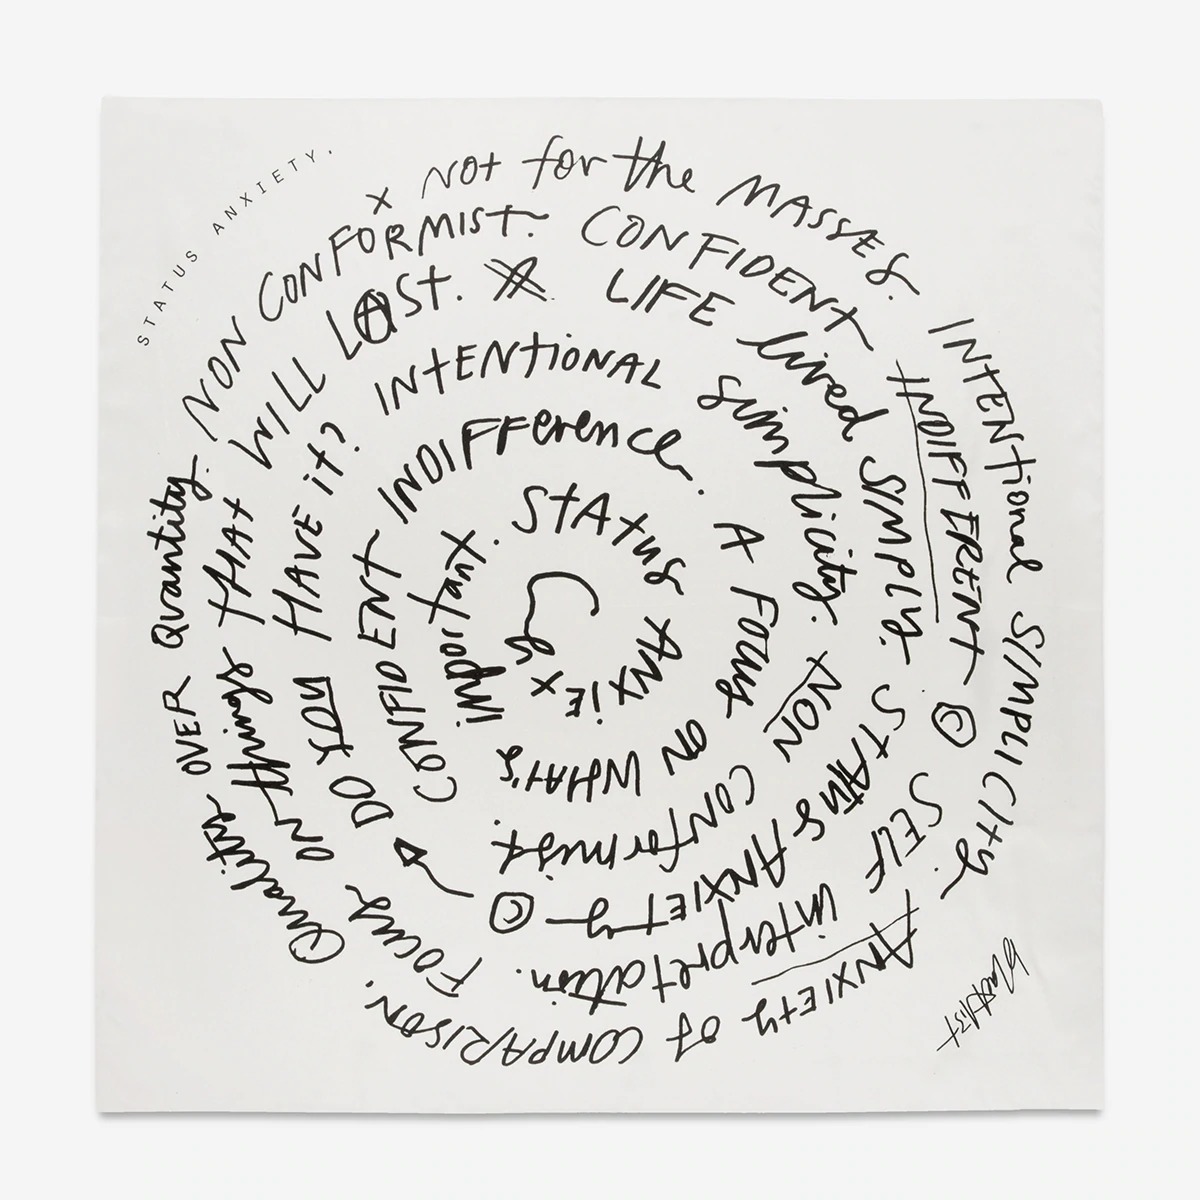 STATUS ANXIETY.
x NOT for the MASSES.
INTENTIONAL SIMPLICITY.
ANXIETY OF COMPARISON.
Quality OVER Quantity.
NON CONFORMIST.
CONFIDENT INDIFFERENT ©
SELF interpretation.
FOCUS ON things that WILL LAST.
LIFE lived SIMPLY.
STATUS ANXIETY ©
DO YOU HAVE it?
INTENTIONAL simplicity.
NON CONFORMIST.
CONFIDENT INDIFFERENCE.
A FOCUS ON WHAT'S important.
STATUS ANXIE